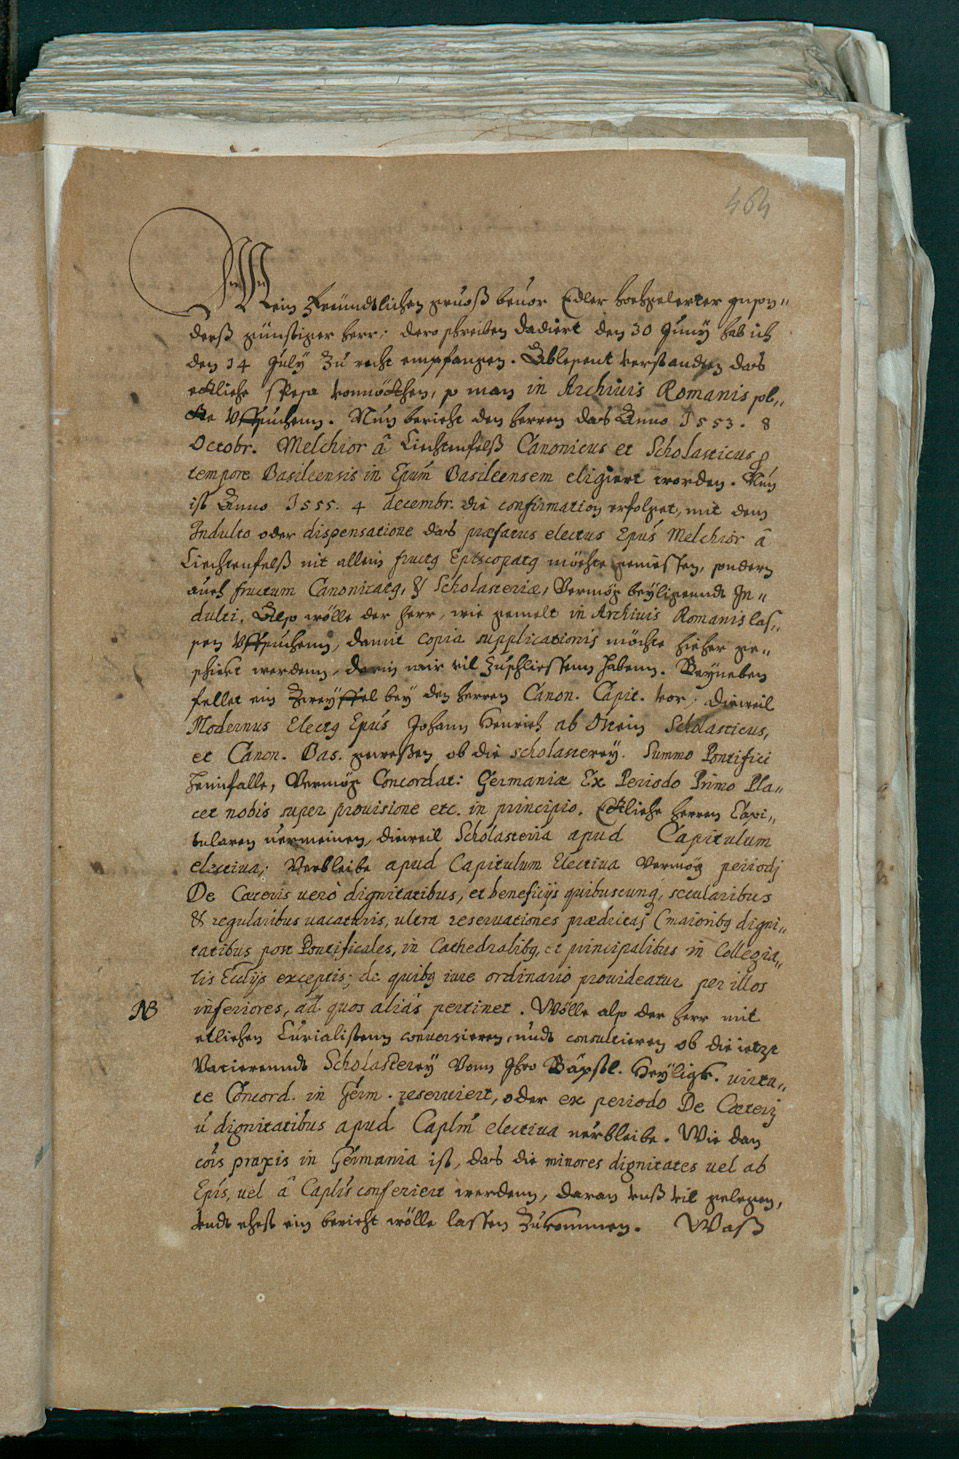 464
Mein Freündtlichen gruoß beuor Edler hochgelerter gnson„
derß günstiger herr; dero schreiben dadiert den 30 Junÿ hab ich
den 14 Julÿ zu recht empfangen. Ablesent verstanden das
ettliche vonnöthen, so man in Archiuis Romanis sol„
te vffsuchenn. Nun bericht den herren das Anno 1553. 8
Octobr. Melchior â Liechtenfelß Canonicus et Scholasticus p
tempore Basileensis in Epũm Basileensem eligiert worden. Nun
ist Anno 1555. 4 decembr. die confirmation erfolget, mit dem
Indulto oder dispensatione das præfatus electus Epũs Melchior â
Liechtenfelß nit allein fructg Episcopatg möchte geniessen, sondern
auch fructum Canonicatg, & Scholasteriæ, Vermög beÿligennds In„
dulti. Also wölle der herr, wie gemelt in Archiuis Romanis las„
sen vffsuchenn, damit copia supplicationis möchte hieher ge„
schickt werdenn, darin mir vil zuschliessenn habenn. Beÿneben
fellet ein Zweÿffel beÿ den herren Canon. Capit. vor; dieweil
Modernus Electg Epũs Johann Henrich ab Ostein Scholasticus,
et Canon. Bas. geweßen, ob die scholasterey. Summo Pontifici
heimfalle, Vermög Concordat: Germaniæ Ex Periodo Primo Pla„
cet nobis super prouisione etc. in principio. Ettliche herren Capi„
tularen vermeinen, dieweil Scholasteria apud Capitulum
electiua, Verbleibe apud Capitulum Electiua vermög periodj
De Cæteris uerò dignitatibus, et beneficijs quibuscunq, secularibus
& regularibus uacaturis, ultra reseruationes prædictas (maioribg digni„
tatibus post Pontificales, in Cathedralibg, et principalibus in Collegia„
tis Ecclijs exceptis; de quibg iure ordinario prouideatur per illos
NB inferiores, ad quos aliàs pertinet. Wölle also der herr mit
etlichen Curialistenn conuersieren, unds consultieren ob die ietzt
Vacierennds Scholasterey Vonn Ihro Bäpstl. Heÿligk. uirtu„
te Concord. in Germ. reseruiert, oder ex periodo De Cæterij
ũ dignitatibus apud Caplm̃ electiua uerbleibe. Wie dan
cõis praxis in Germania ist, das die minores dignitates uel ab
Epĩs, uel â Caplĩs conferiert werdenn, daran vnß vil gelegen,
vnds ehest ein bericht wölle lassen zukommen. Waß